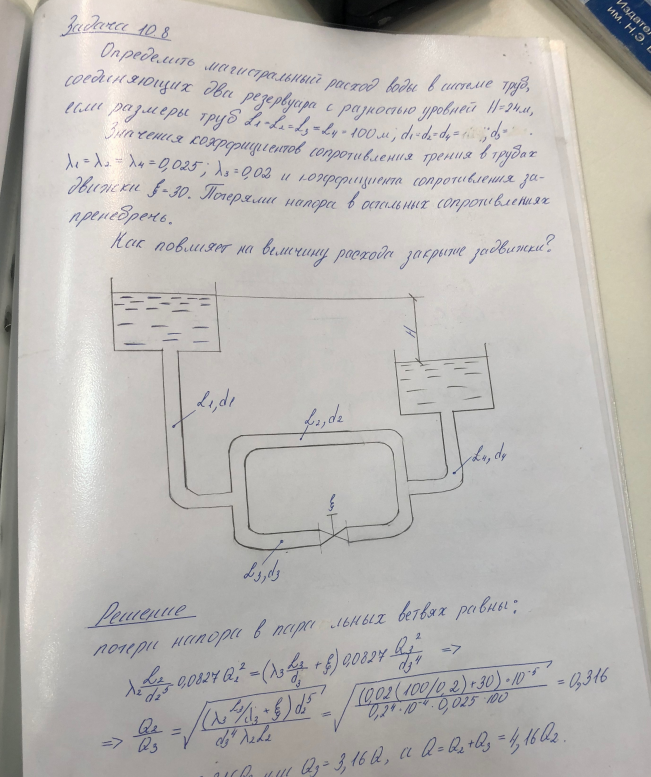 Издател
им. Н.Э. Б
Задача 10.8
Определить магистральный расход воды в системе труб,
соединяющих два резервуара с разностью уровней H=24м,
если размеры труб L1=L2=L3=L4=100м; d1=d2=d4= ; d3=
Значения коэффициентов сопротивления трения в трубах
λ1=λ2=λ4=0,025; λ3=0,02 и коэффициента сопротивления за-
движки ξ=30. Потерями напора в остальных сопротивлениях
пренебречь.
Как повлияет на величину расхода закрытие задвижки?
H
L1, d1
L2, d2
L4, d4
ξ
L3, d3
Решение
потери напора в пара льных ветвях равны:
λ2 L2/d2^5 0,0827 Q2^2 = (λ3 L3/d3 + ξ) 0,0827 Q3^2/d3^4 =>
=> Q2/Q3 = √((λ3 L3/d3 + ξ) d2^5 / d3^4 λ2 L2) = √((0,02(100/0,2)+30)·10^-5 / 0,2^4·10^-4·0,025·100) = 0,316
Q3 = 3,16Q, и Q=Q2+Q3 = 4,16Q2.